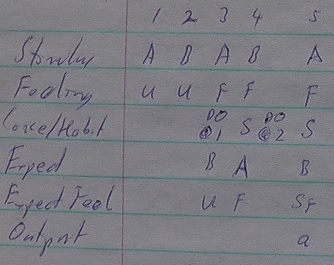 1 2 3 4 5
Stimulus A B A B A
Feeling U U F F F
Force/Habit DO @1 S DO @2 S
Exped B A B
Expect Feel U F SF
Output a